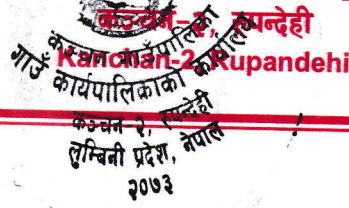 कञ्चन-२, रुपन्देही
Kanchan-2, Rupandehi
कञ्चन गाउँपालिका
गाउँ कार्यपालिकाको कार्यालय
कञ्चन २, रुपन्देही
लुम्बिनी प्रदेश, नेपाल
२०७३